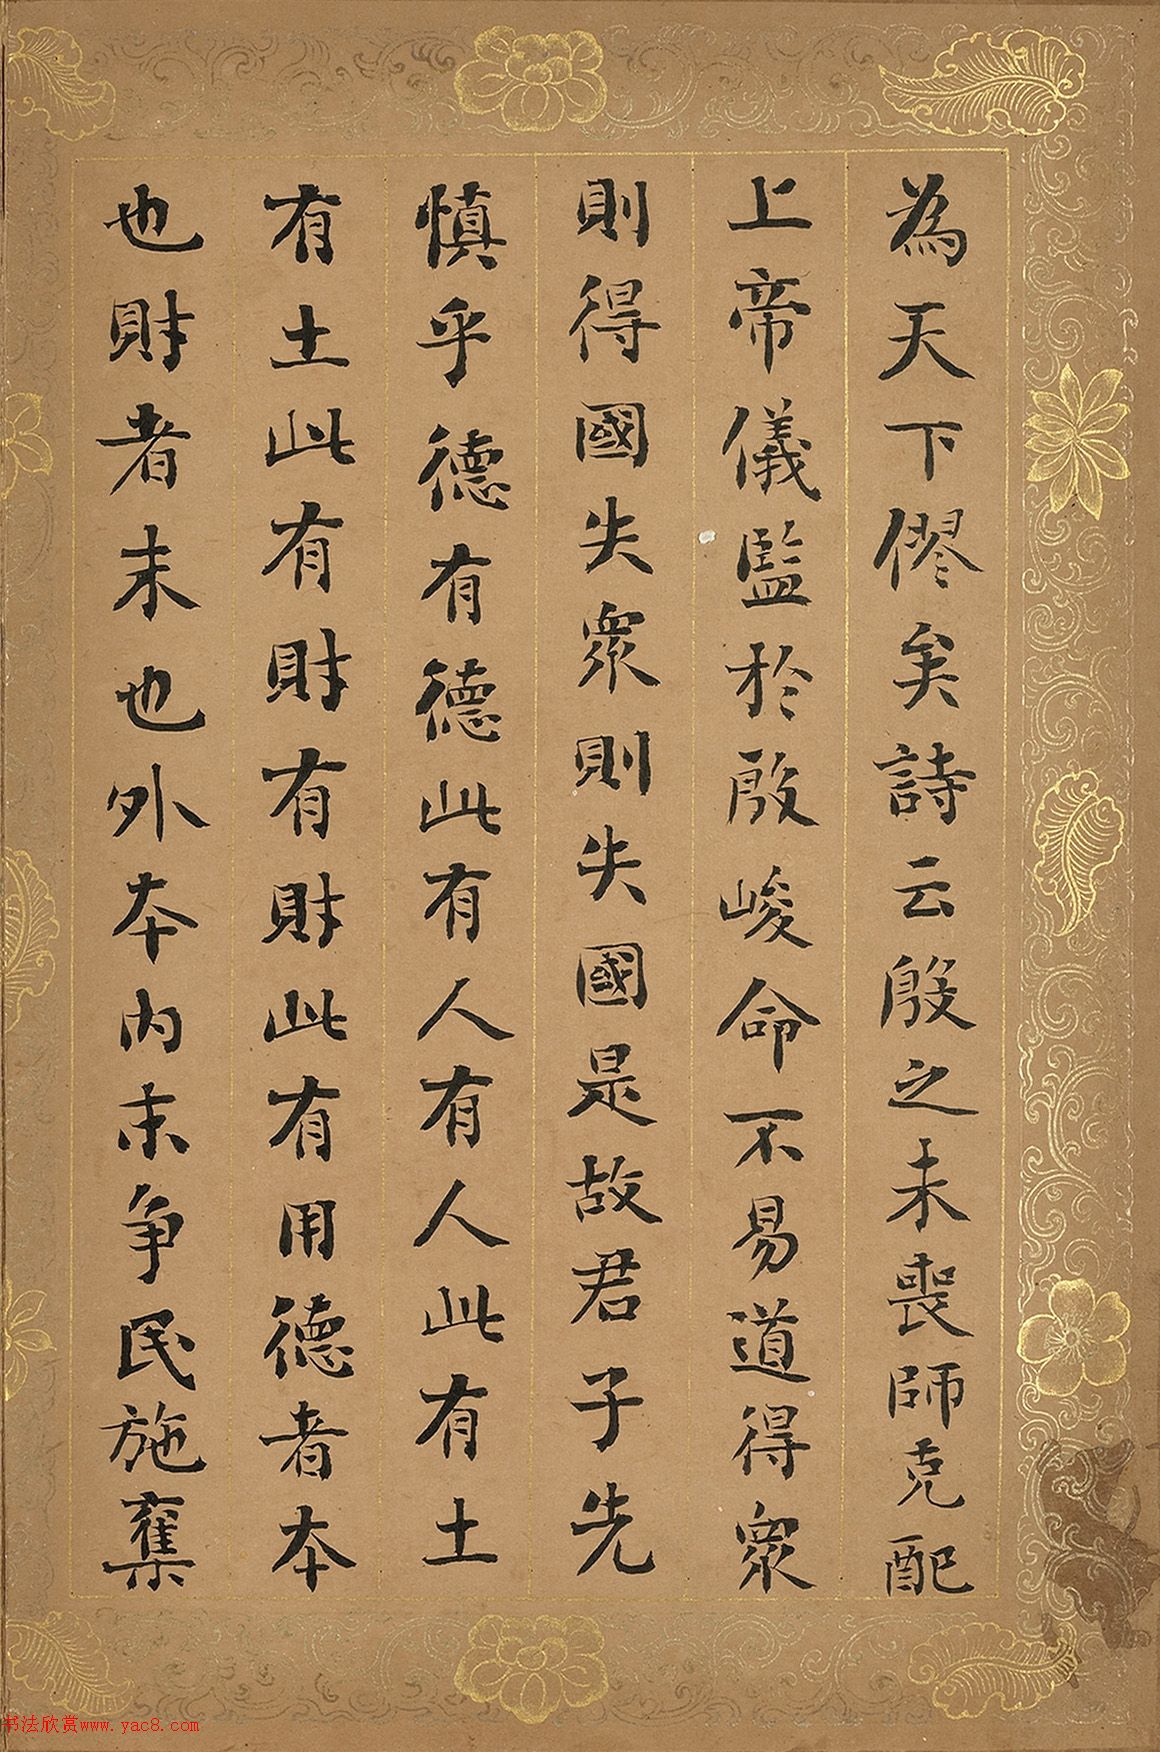 為天下僇矣詩云殷之未喪師克配
上帝儀監於殷峻命不易道得眾
則得國失眾則失國是故君子先
慎乎德有德此有人有人此有土
有土此有財有財此有用德者本
也財者末也外本內末爭民施奪
书法欣赏www.yac8.com